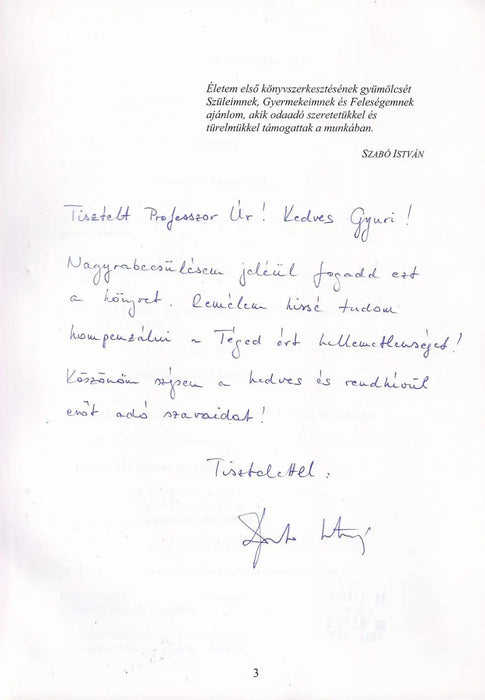 Életem első könyvszerkesztésének gyümölcsét
Szüleimnek, Gyermekeimnek és Feleségemnek
ajánlom, akik odaadó szeretetükkel és
türelmükkel támogattak a munkában.
SZABÓ ISTVÁN
Tisztelt Professzor Úr! Kedves Gyuri!
Nagyrabecsülésem jeléül fogadd ezt
a könyvet. Remélem kissé tudom
kompenzálni a Téged ért kellemetlenséget!
Köszönöm szépen a kedves és rendkívül
erőt adó szavaidat!
Tisztelettel:
3